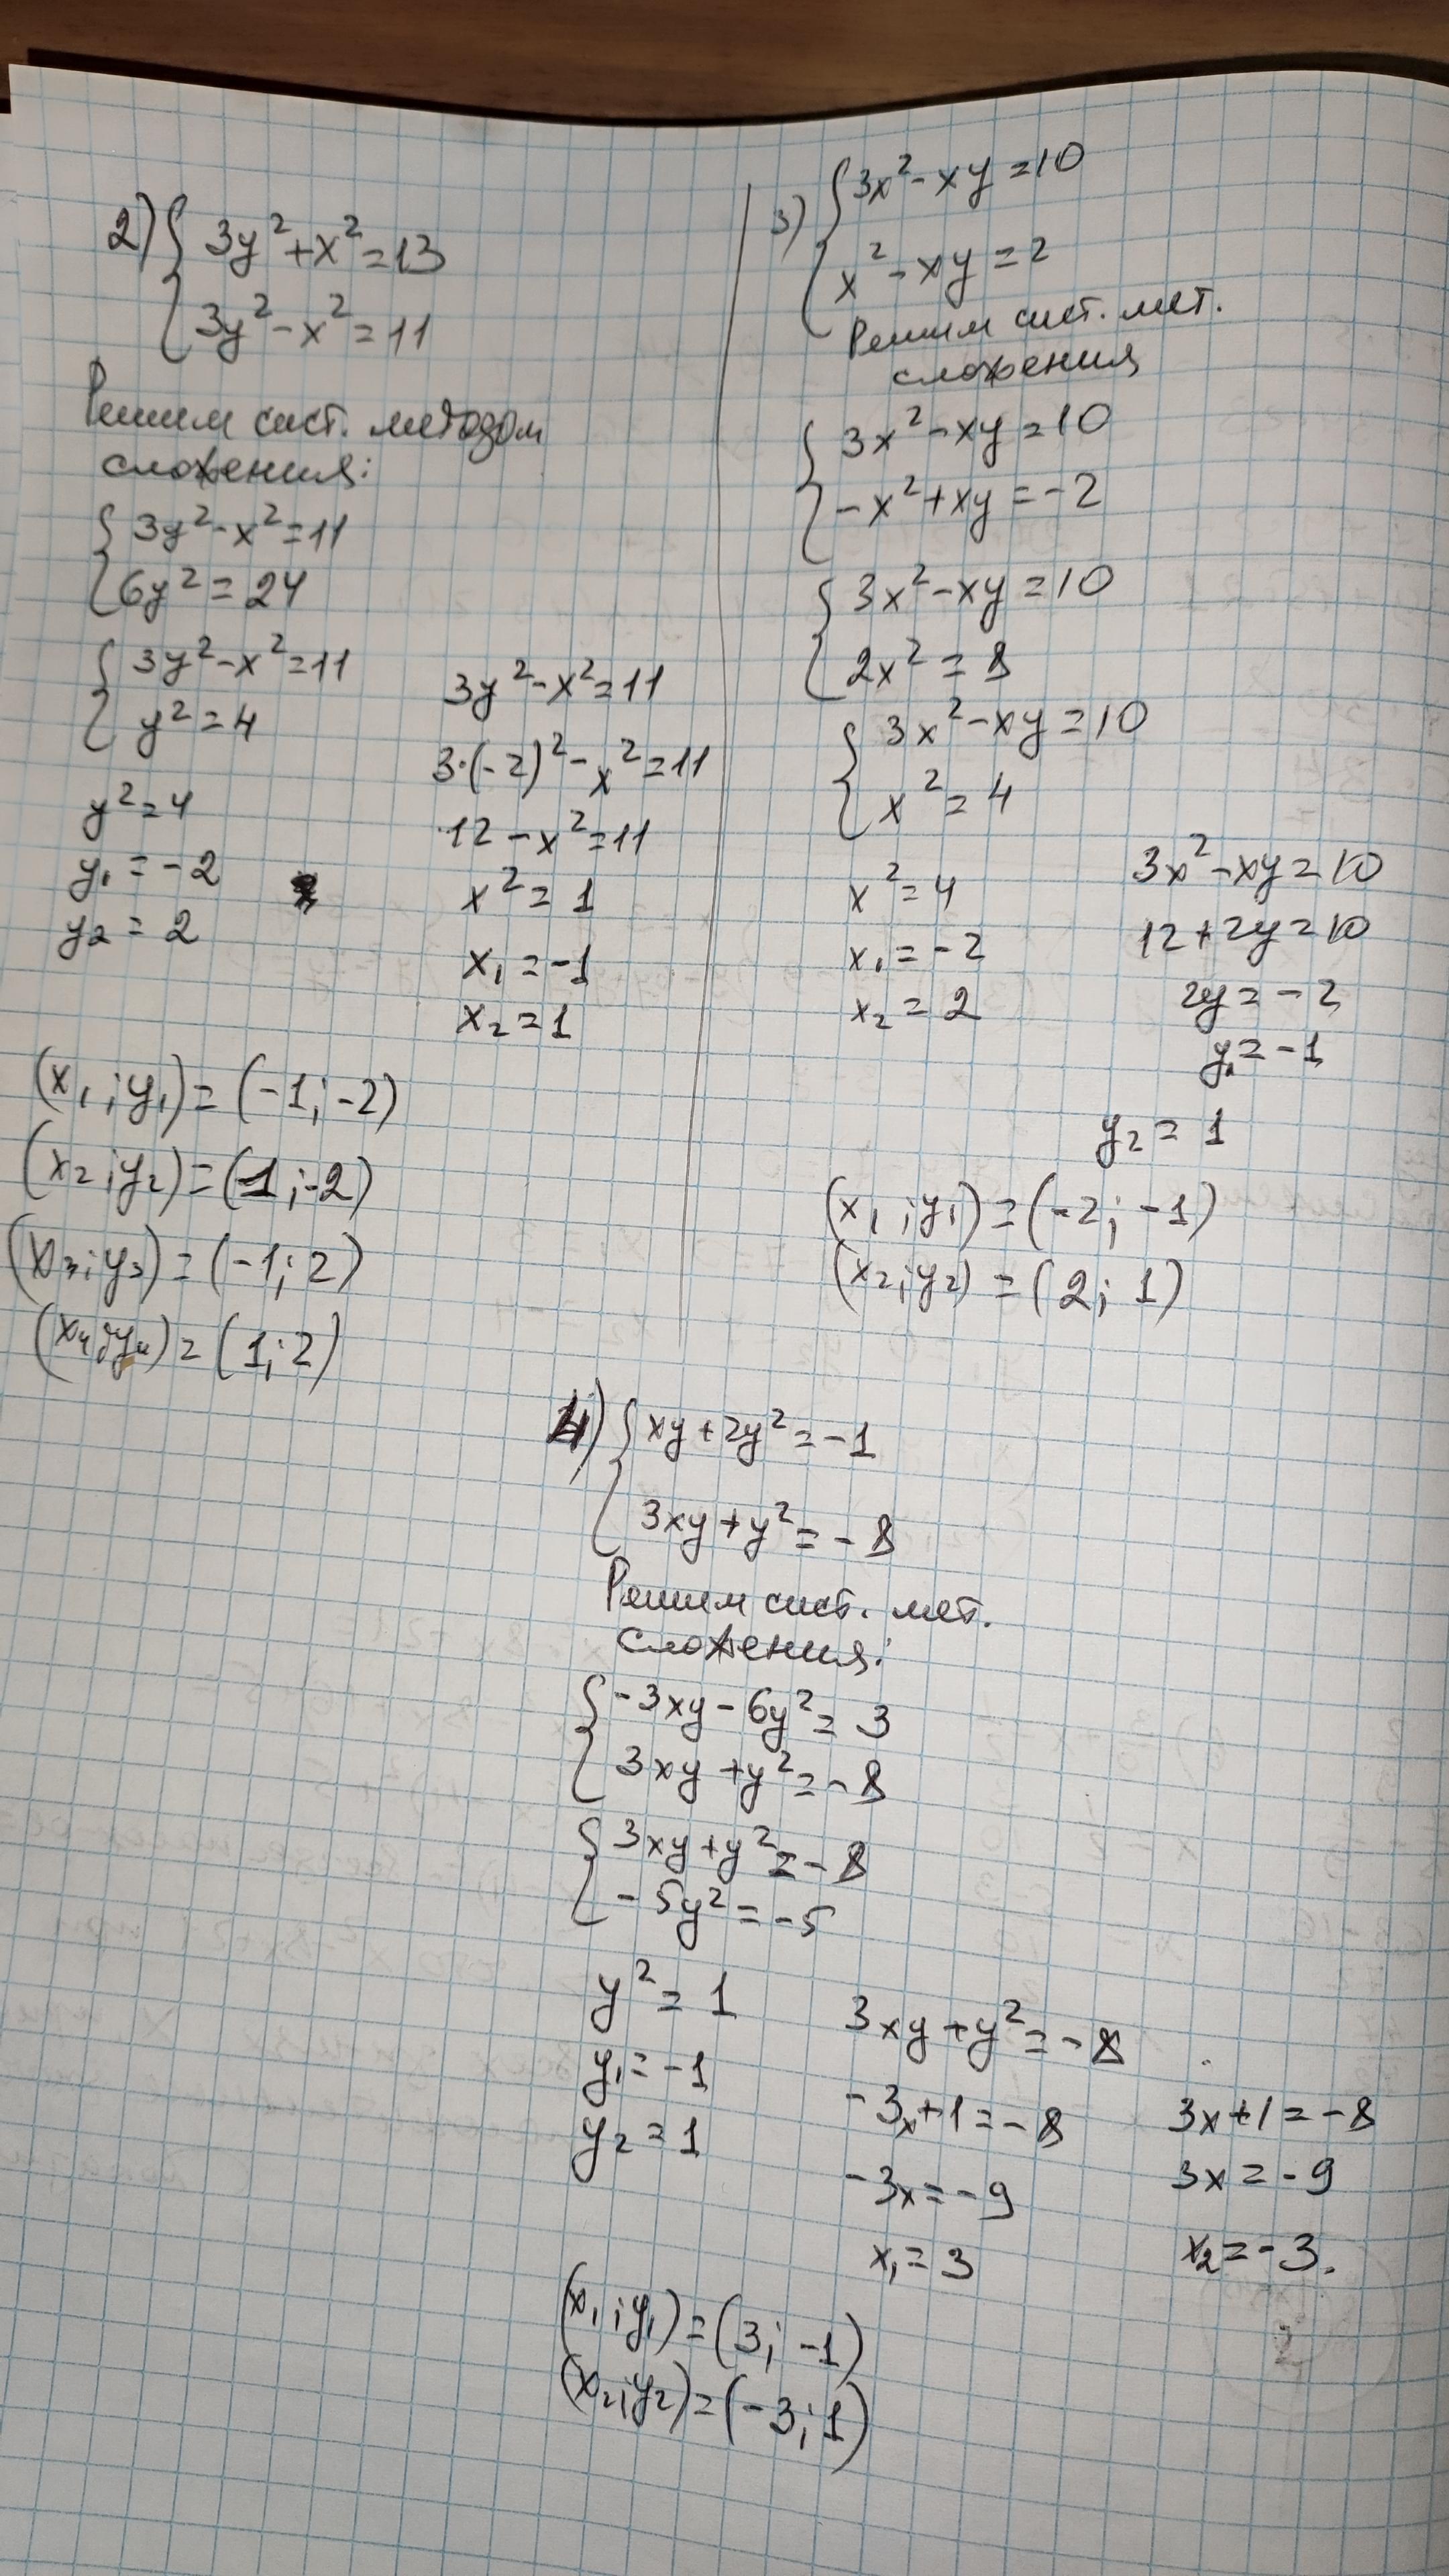 2) { 3y² + x² = 13
3y² - x² = 11
Решим сист. методом
сложения:
{ 3y² - x² = 11
6y² = 24
{ 3y² - x² = 11
y² = 4
y² = 4
y₁ = -2
y₂ = 2
3y² - x² = 11
3·(-2)² - x² = 11
12 - x² = 11
x² = 1
x₁ = -1
x₂ = 1
(x₁; y₁) = (-1; -2)
(x₂; y₂) = (1; -2)
(x₃; y₃) = (-1; 2)
(x₄; y₄) = (1; 2)
3) { 3x² - xy = 10
x² - xy = 2
Решим сист. мет.
сложения
{ 3x² - xy = 10
-x² + xy = -2
{ 3x² - xy = 10
2x² = 8
{ 3x² - xy = 10
x² = 4
x² = 4
x₁ = -2
x₂ = 2
3x² - xy = 10
12 + 2y = 10
2y = -2
y₁ = -1
y₂ = 1
(x₁; y₁) = (-2; -1)
(x₂; y₂) = (2; 1)
4) { xy + 2y² = -1
3xy + y² = -8
Решим сист. мет.
сложения:
{ -3xy - 6y² = 3
3xy + y² = -8
{ 3xy + y² = -8
-5y² = -5
y² = 1
y₁ = -1
y₂ = 1
3xy + y² = -8
-3x + 1 = -8
-3x = -9
x₁ = 3
3x + 1 = -8
3x = -9
x₂ = -3.
(x₁; y₁) = (3; -1)
(x₂; y₂) = (-3; 1)